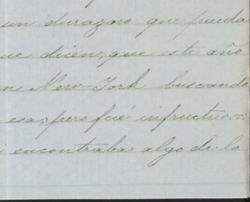 un durazno que pueda
ue dicen, que este año
n New York buscando
esa, pero fué infructuo
encontraba algo de lo